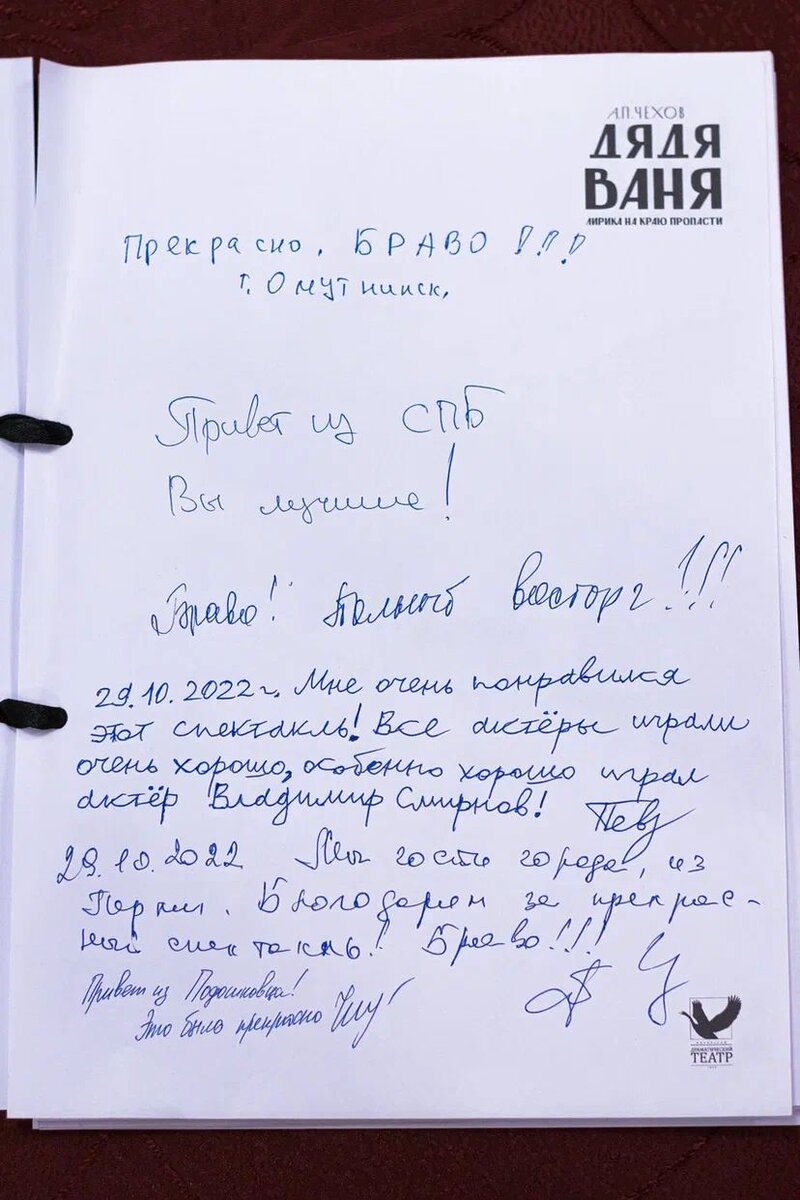 А.П.ЧЕХОВ
ДЯДЯ
ВАНЯ
ЛИРИКА НА КРАЮ ПРОПАСТИ
Прекрасно. БРАВО!!!
г. Омутнинск.
Привет из СПБ
Вы лучшие!
Браво! Полный восторг!!!
29.10.2022г. Мне очень понравился
этот спектакль! Все актёры играли
очень хорошо, особенно хорошо играл
актёр Владимир Смирнов!
29.10.2022 Мы гости города, из
Перми. Благодарим за прекрас-
ный спектакль! Браво!!!
Привет из
Это было прекрасно
ДРАМАТИЧЕСКИЙ
ТЕАТР